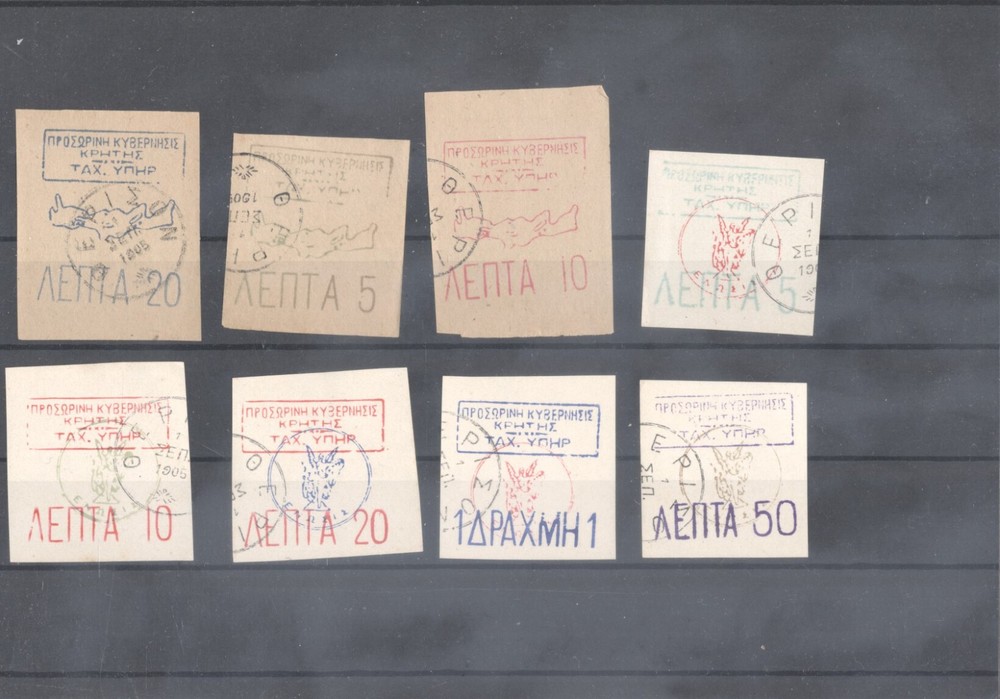 ΠΡΟΣΩΡΙΝΗ ΚΥΒΕΡΝΗΣΙΣ
ΚΡΗΤΗΣ
ΤΑΧ. ΥΠΗΡ
ΣΕΠ.
1905
ΛΕΠΤΑ 20
ΠΡΟΣΩΡΙΝΗ ΚΥΒΕΡΝΗΣΙΣ
ΚΡΗΤΗΣ
ΤΑΧ. ΥΠΗΡ
ΘΕΡΙ
1
ΣΕΠ
1905
ΛΕΠΤΑ 5
ΠΡΟΣΩΡΙΝΗ ΚΥΒΕΡΝΗΣΙΣ
ΚΡΗΤΗΣ
ΤΑΧ. ΥΠΗΡ
ΘΕΡΙ
ΛΕΠΤΑ 10
ΠΡΟΣΩΡΙΝΗ ΚΥΒΕΡΝΗΣΙΣ
ΚΡΗΤΗΣ
ΤΑΧ. ΥΠΗΡ
ΘΕΡΙ
1
ΣΕΠ
190
ΛΕΠΤΑ 5
ΠΡΟΣΩΡΙΝΗ ΚΥΒΕΡΝΗΣΙΣ
ΚΡΗΤΗΣ
ΤΑΧ. ΥΠΗΡ
ΘΕΡΙ
1
ΣΕΠ.
1905
ΛΕΠΤΑ 10
ΠΡΟΣΩΡΙΝΗ ΚΥΒΕΡΝΗΣΙΣ
ΚΡΗΤΗΣ
ΤΑΧ. ΥΠΗΡ
ΘΕΡΙ
ΛΕΠΤΑ 20
ΠΡΟΣΩΡΙΝΗ ΚΥΒΕΡΝΗΣΙΣ
ΚΡΗΤΗΣ
ΤΑΧ. ΥΠΗΡ
ΡΙΜΟΝ
1
ΣΕΠ.
1 ΔΡΑΧΜΗ 1
ΠΡΟΣΩΡΙΝΗ ΚΥΒΕΡΝΗΣΙΣ
ΚΡΗΤΗΣ
ΤΑΧ. ΥΠΗΡ
ΘΕΡΙ
1
ΣΕΠ.
ΛΕΠΤΑ 50